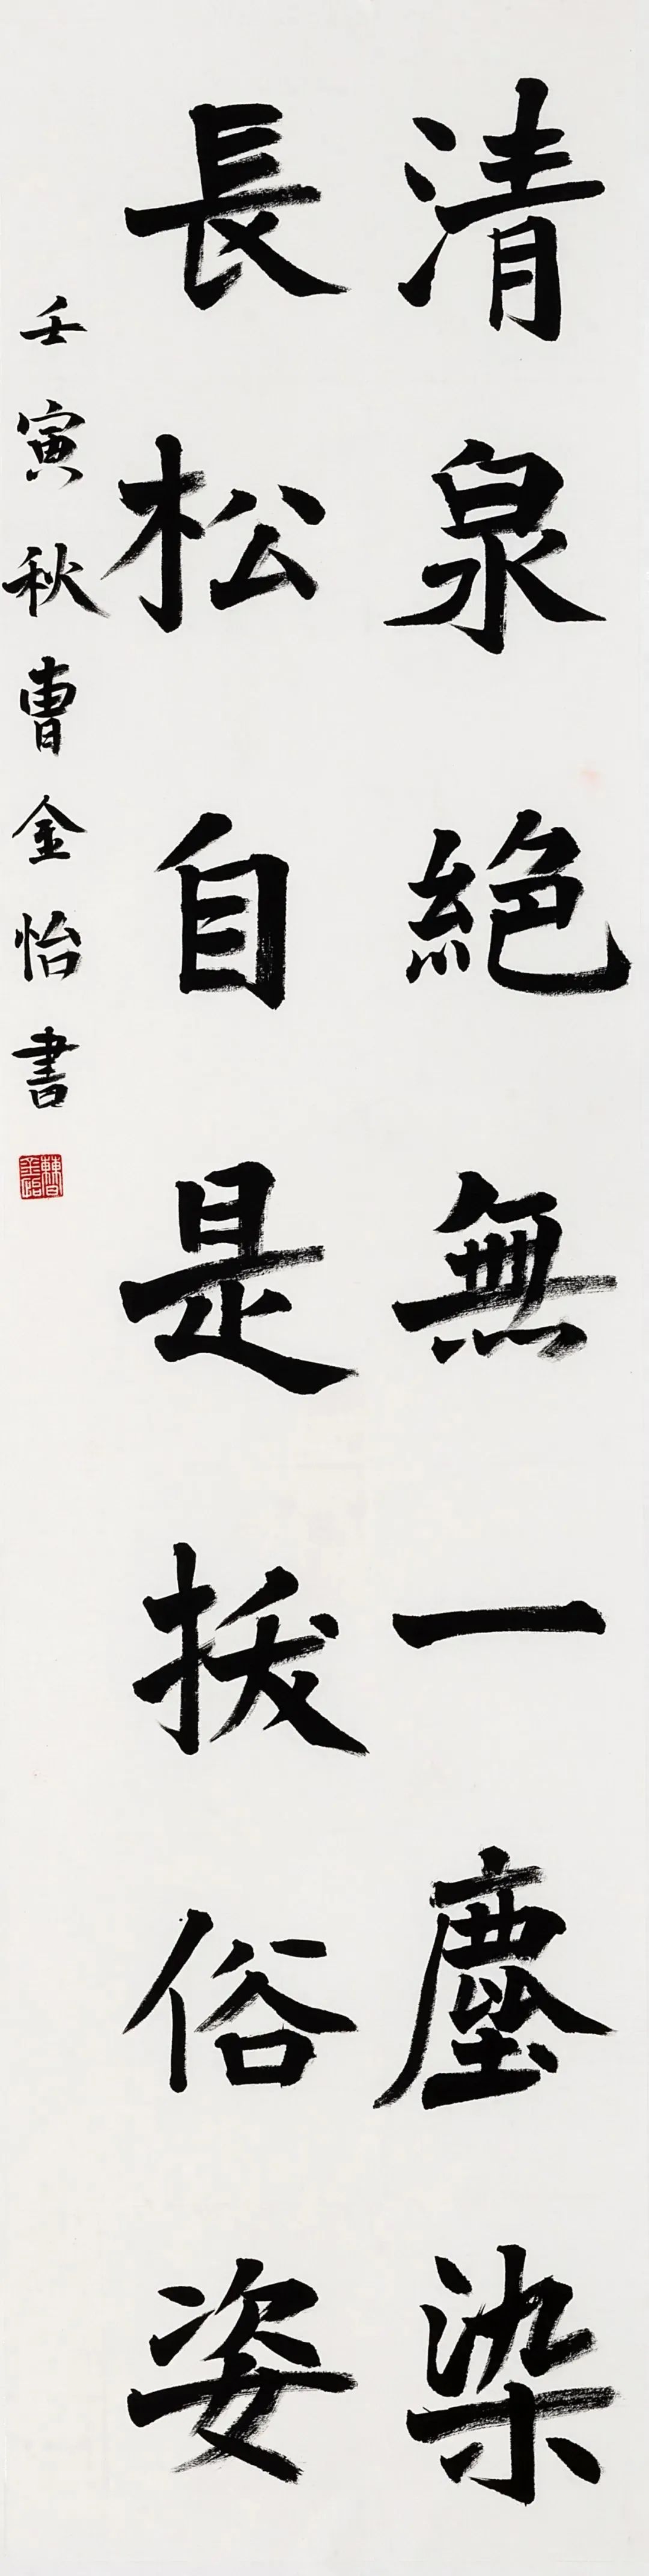 清泉絕無一塵染
長松自是拔俗姿
壬寅秋曹金怡書